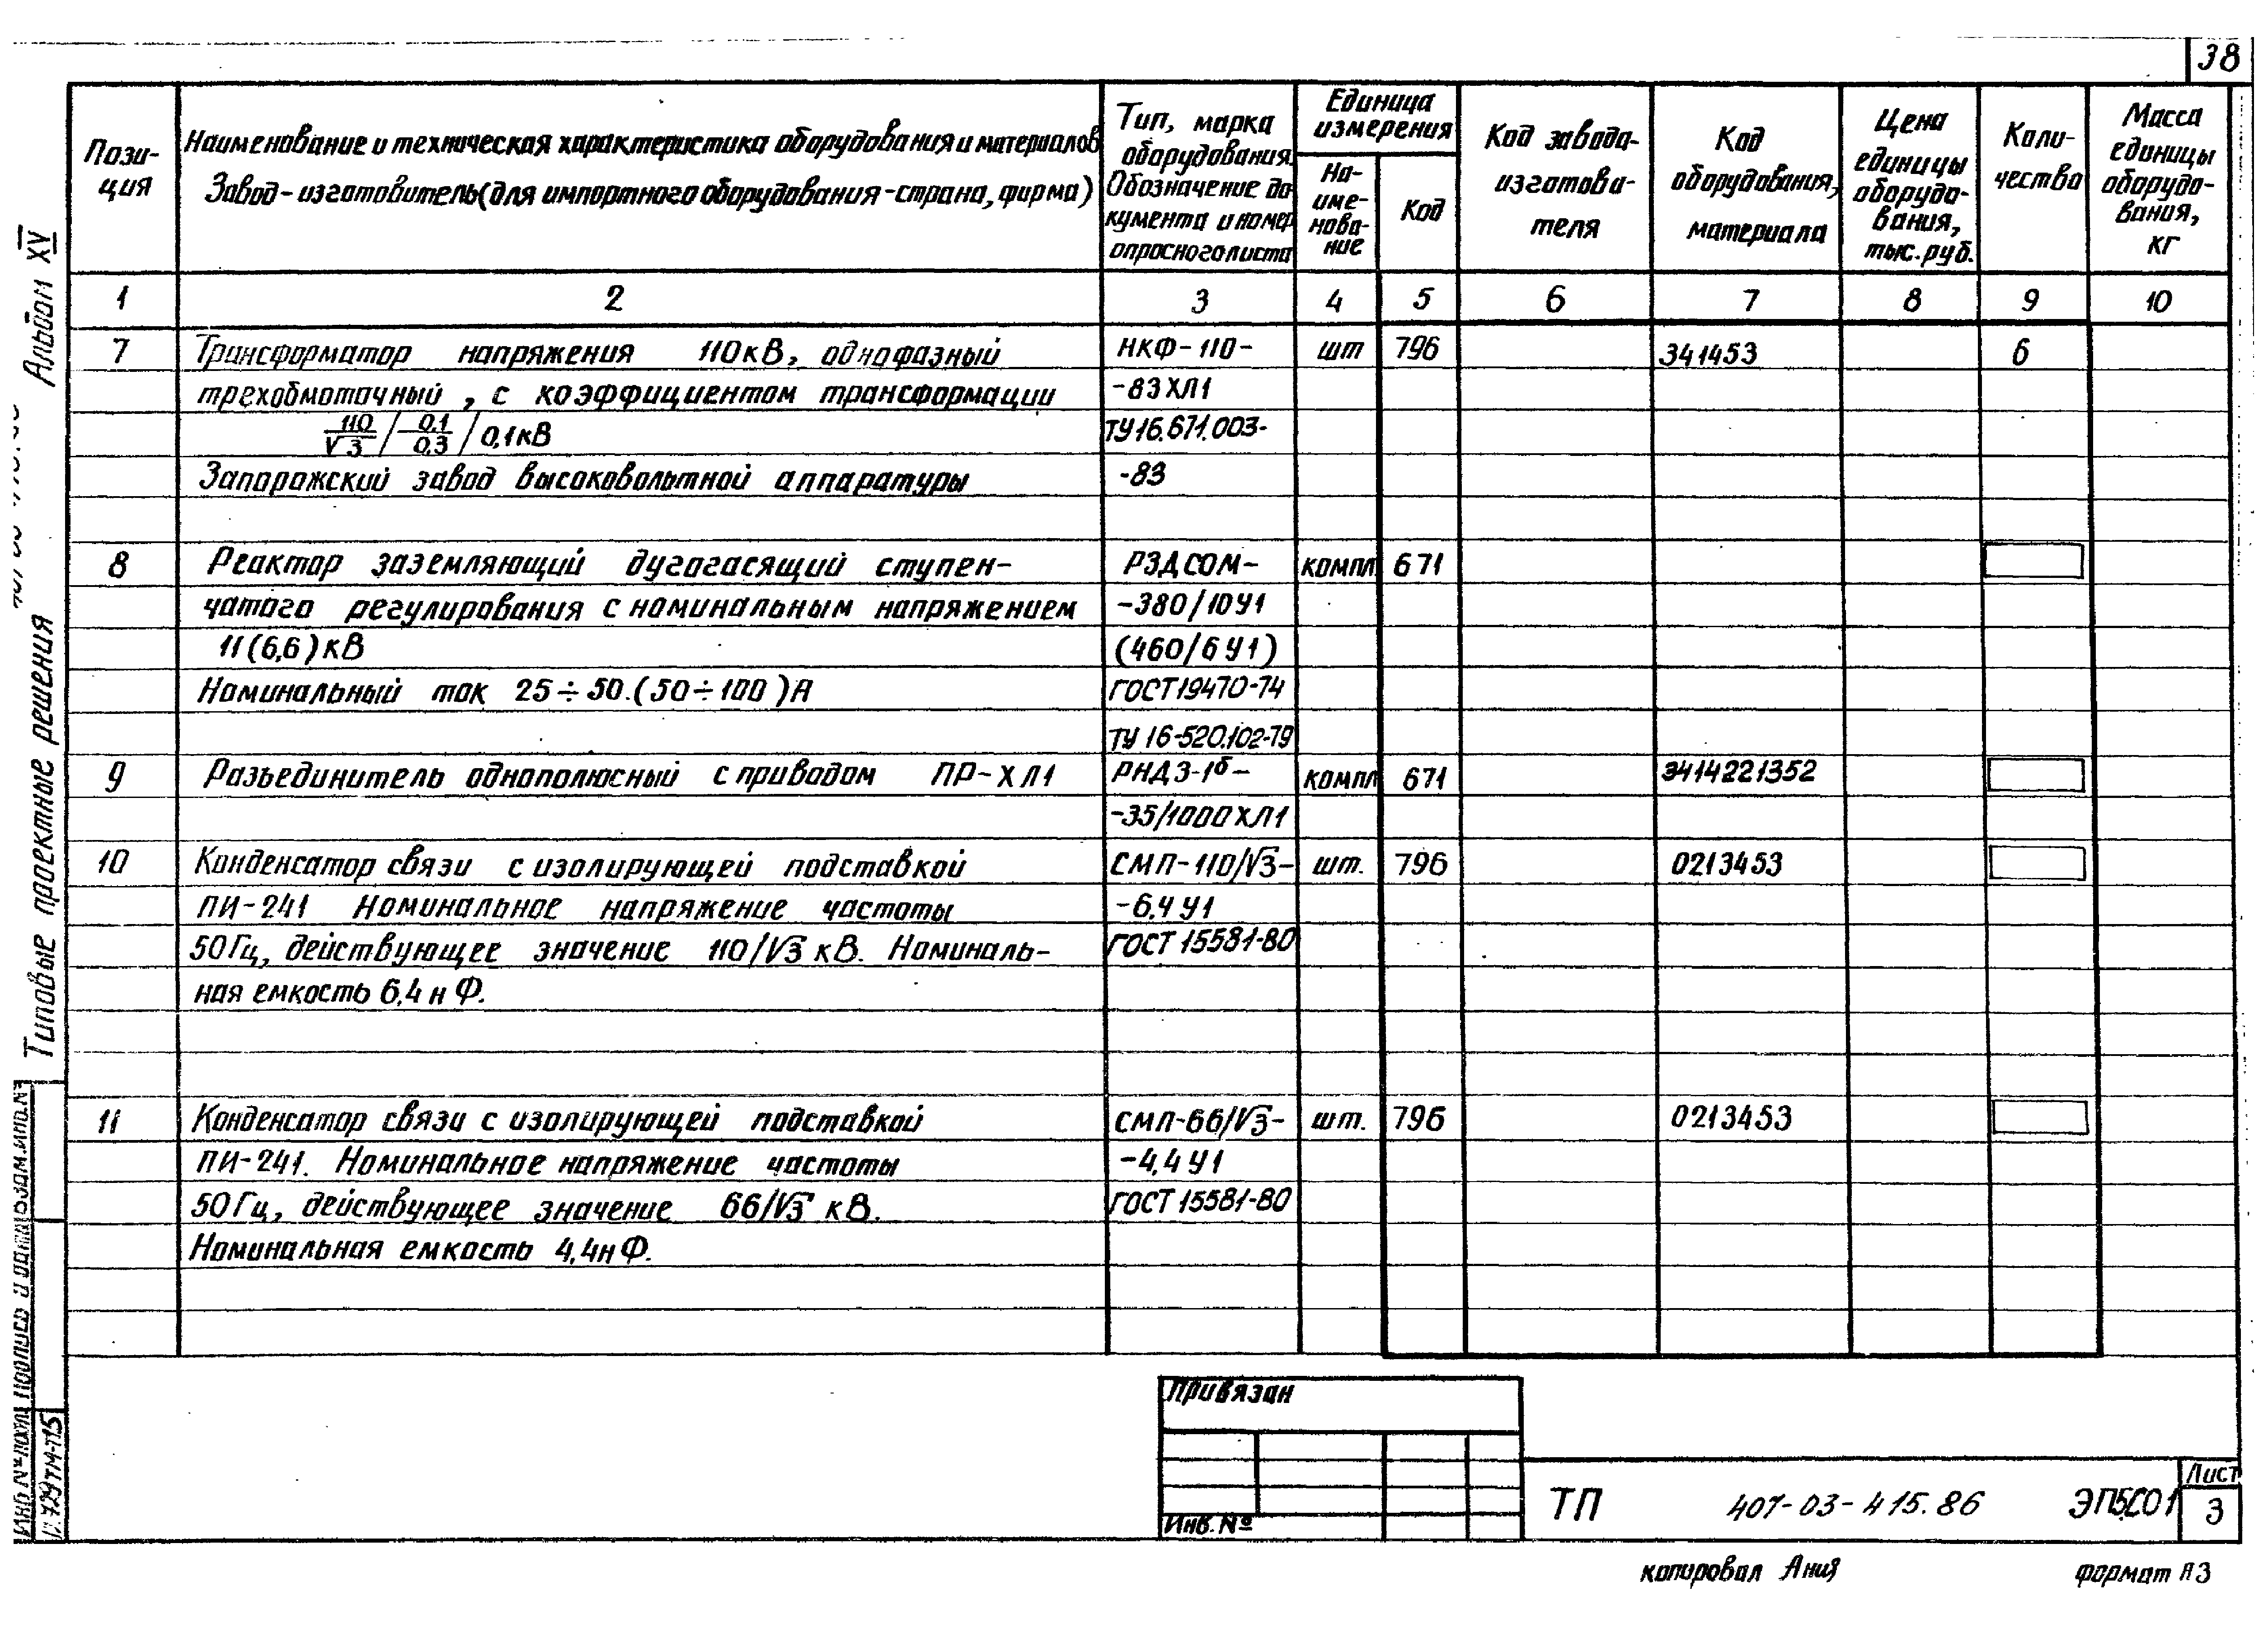 38
Пози-
ция
Наименование и техническая характеристика оборудования и материалов
Завод-изготовитель (для импортного оборудования-страна, фирма)
Тип, марка
оборудования.
Обозначение до
кумента и номер
опросного листа
Единица
измерения
На-
име-
нова-
ние
Код
Код завода-
изготови-
теля
Код
оборудования,
материала
Цена
единицы
оборудо-
вания,
тыс.руб.
Коли-
чество
Масса
единицы
оборудо-
вания,
кг
1 2 3 4 5 6 7 8 9 10
7 Трансформатор напряжения 110кВ, однофазный НКФ-110- шт 796 341453 6
трехобмоточный, с коэффициентом трансформации -83ХЛ1
110/√3 / 0,1/0,3 / 0,1кВ ТУ16.671.003-
Запорожский завод высоковольтной аппаратуры -83
8 Реактор заземляющий дугогасящий ступен- РЗДСОМ- компл 671
чатого регулирования с номинальным напряжением -380/10У1
11(6,6)кВ (460/6У1)
Номинальный ток 25÷50.(50÷100)А ГОСТ19470-74
ТУ 16-520.102-79
9 Разъединитель однополюсный с приводом ПР-ХЛ1 РНДЗ-1б- компл 671 3414221352
-35/1000ХЛ1
10 Конденсатор связи с изолирующей подставкой СМП-110/√3- шт. 796 0213453
ПИ-241 Номинальное напряжение частоты -6,4У1
50Гц, действующее значение 110/√3 кВ. Номиналь- ГОСТ 15581-80
ная емкость 6,4нФ.
11 Конденсатор связи с изолирующей подставкой СМП-66/√3- шт. 796 0213453
ПИ-241. Номинальное напряжение частоты -4,4У1
50Гц, действующее значение 66/√3 кВ. ГОСТ 15581-80
Номинальная емкость 4,4нФ.
Привязан
Инв.№
ТП 407-03-415.86 ЭП5.СО1
Лист
3
копировал Аниз
формат А3
Альбом XV
Типовые проектные решения
Взам.инв.№
Подпись и дата
Инв №подл
729тм-т15